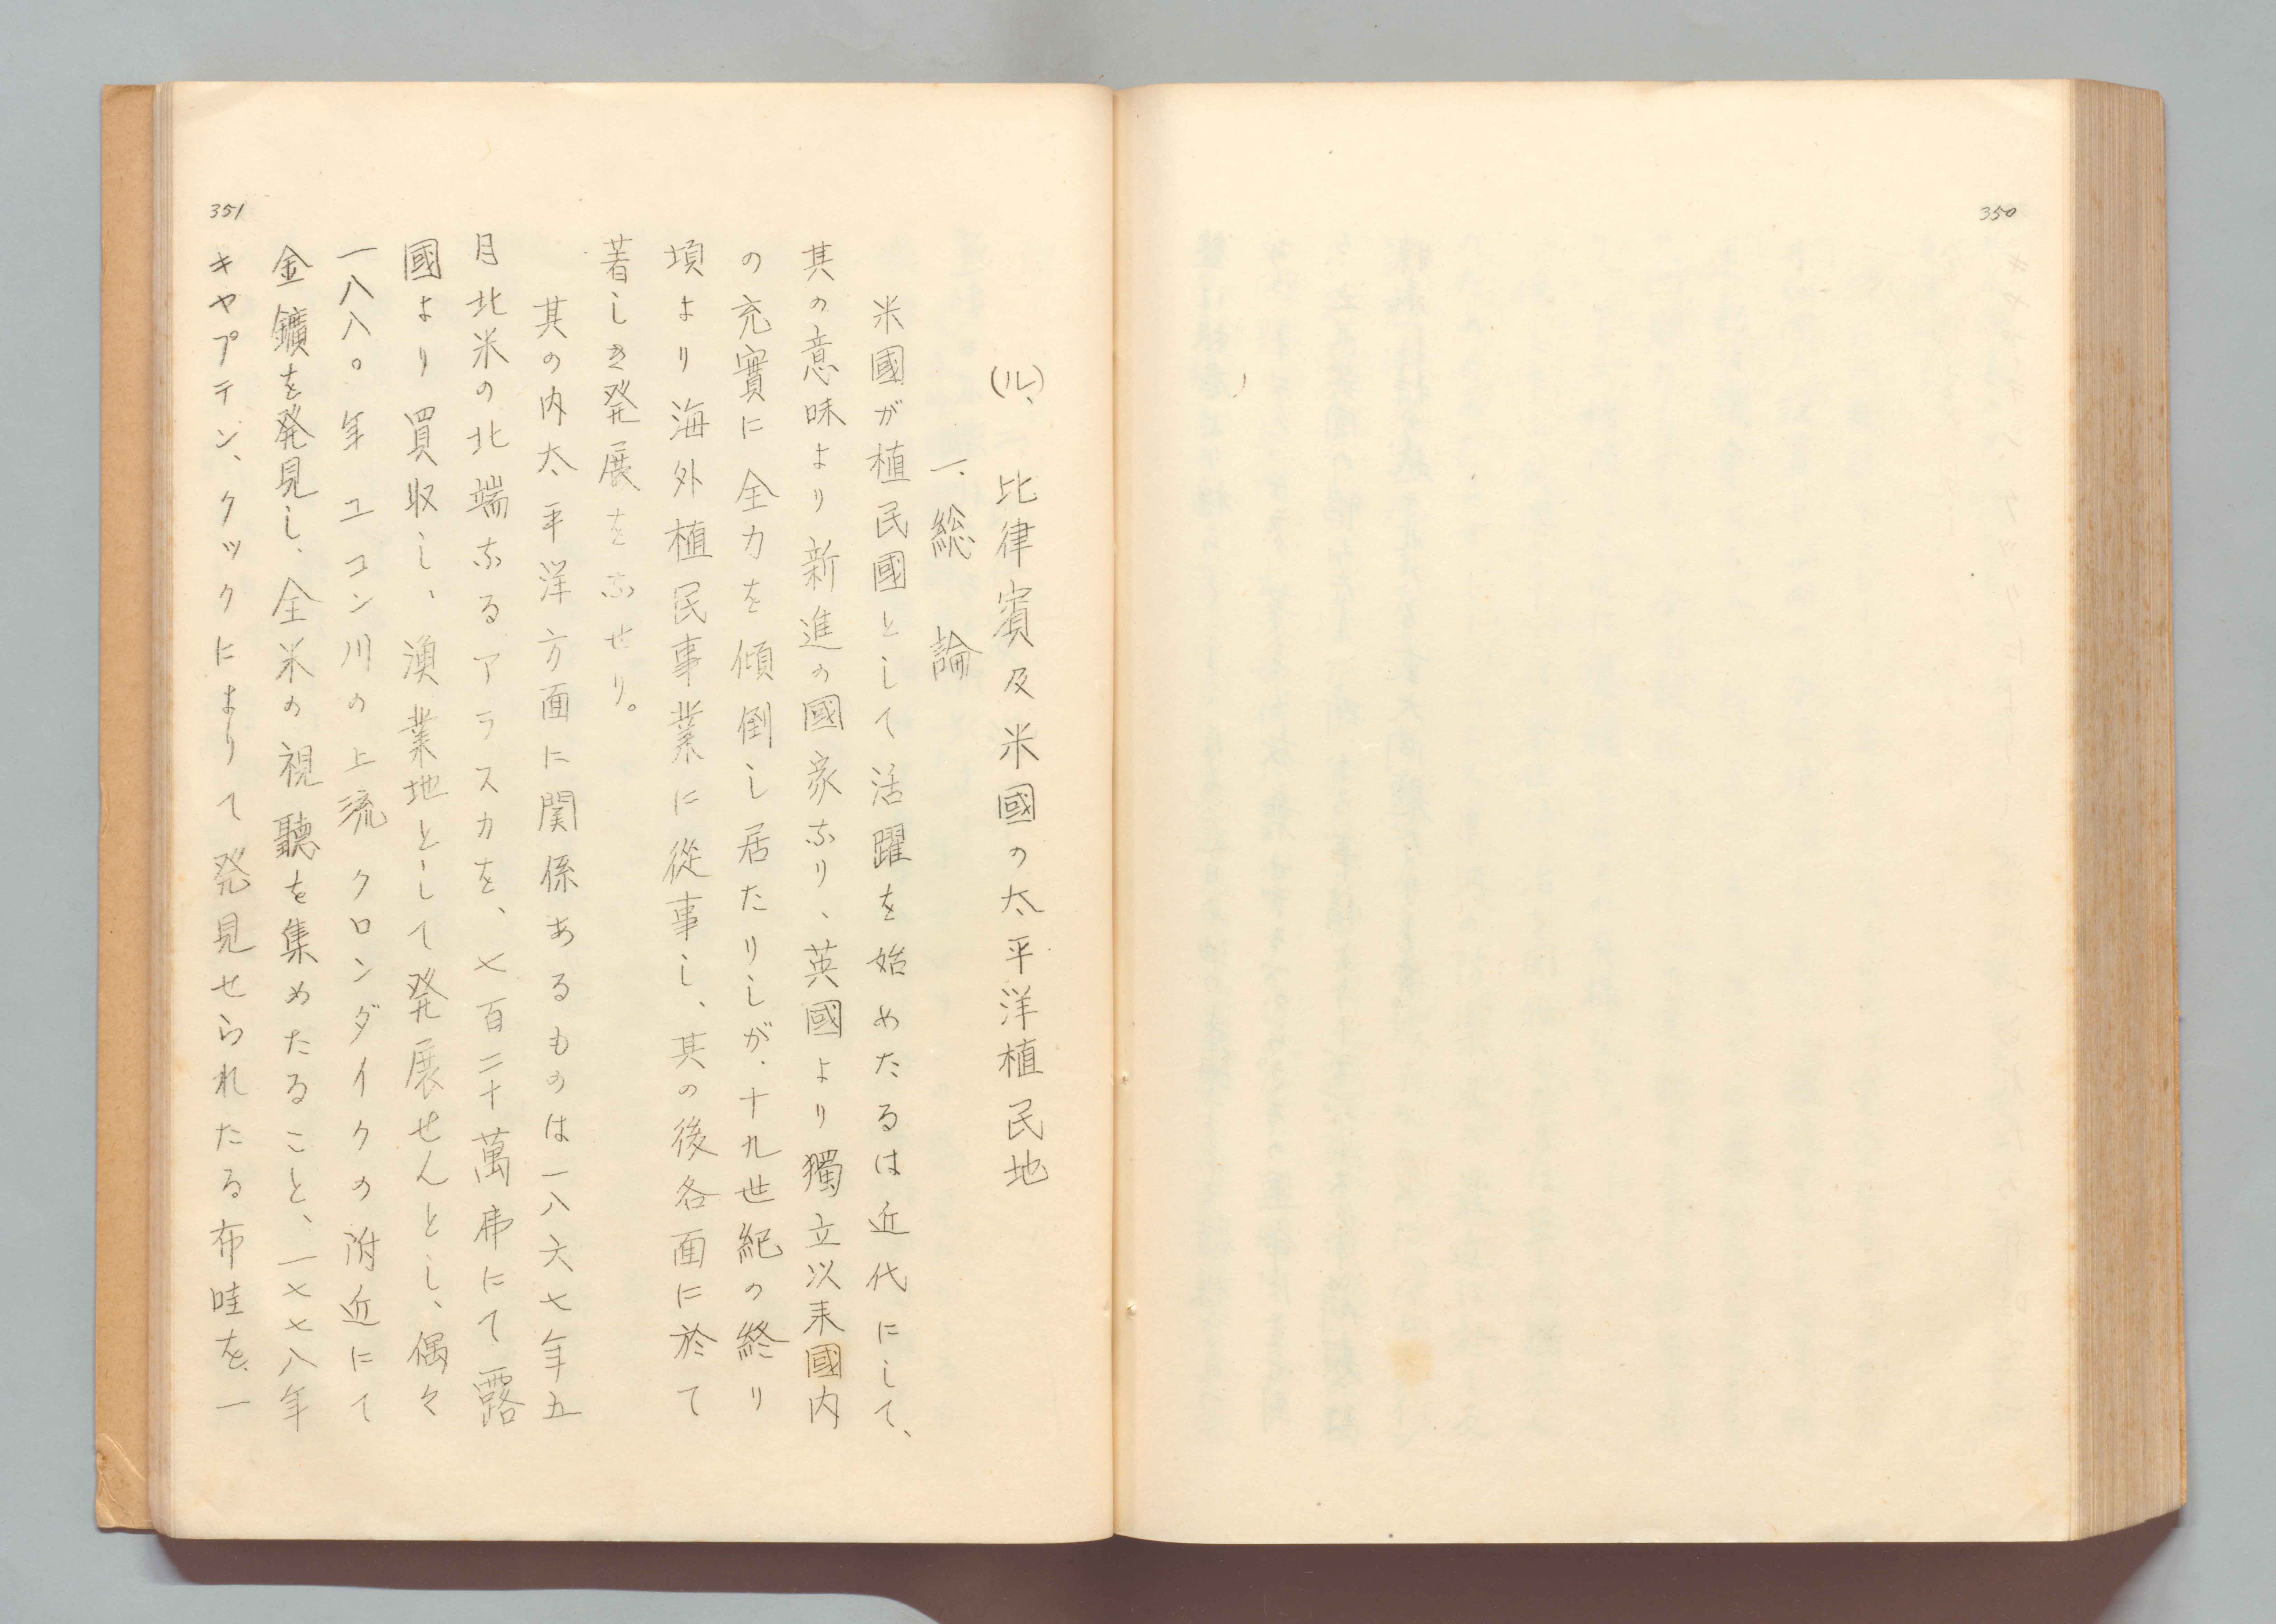 350
(ル)、比律賓及米國の太平洋植民地
一、總論
米國が植民國として活躍を始めたるは近代にして、
其の意味より新進の國家なり、英國より獨立以来國内
の充實に全力を傾倒し居たりしが、十九世紀の終り
頃より海外植民事業に從事し、其の後各面に於て
著しき発展をなせり。
其の内太平洋方面に関係あるものは一八六七年五
月北米の北端なるアラスカを、七百二十萬弗にて露
國より買収し、漁業地として発展せんとし、偶々
一八八〇年ユコン川の上流クロンダイクの附近にて
金鑛を発見し、全米の視聽を集めたること、一七七八年
キャプテン、クックによりて発見せられたる布哇を、一
351